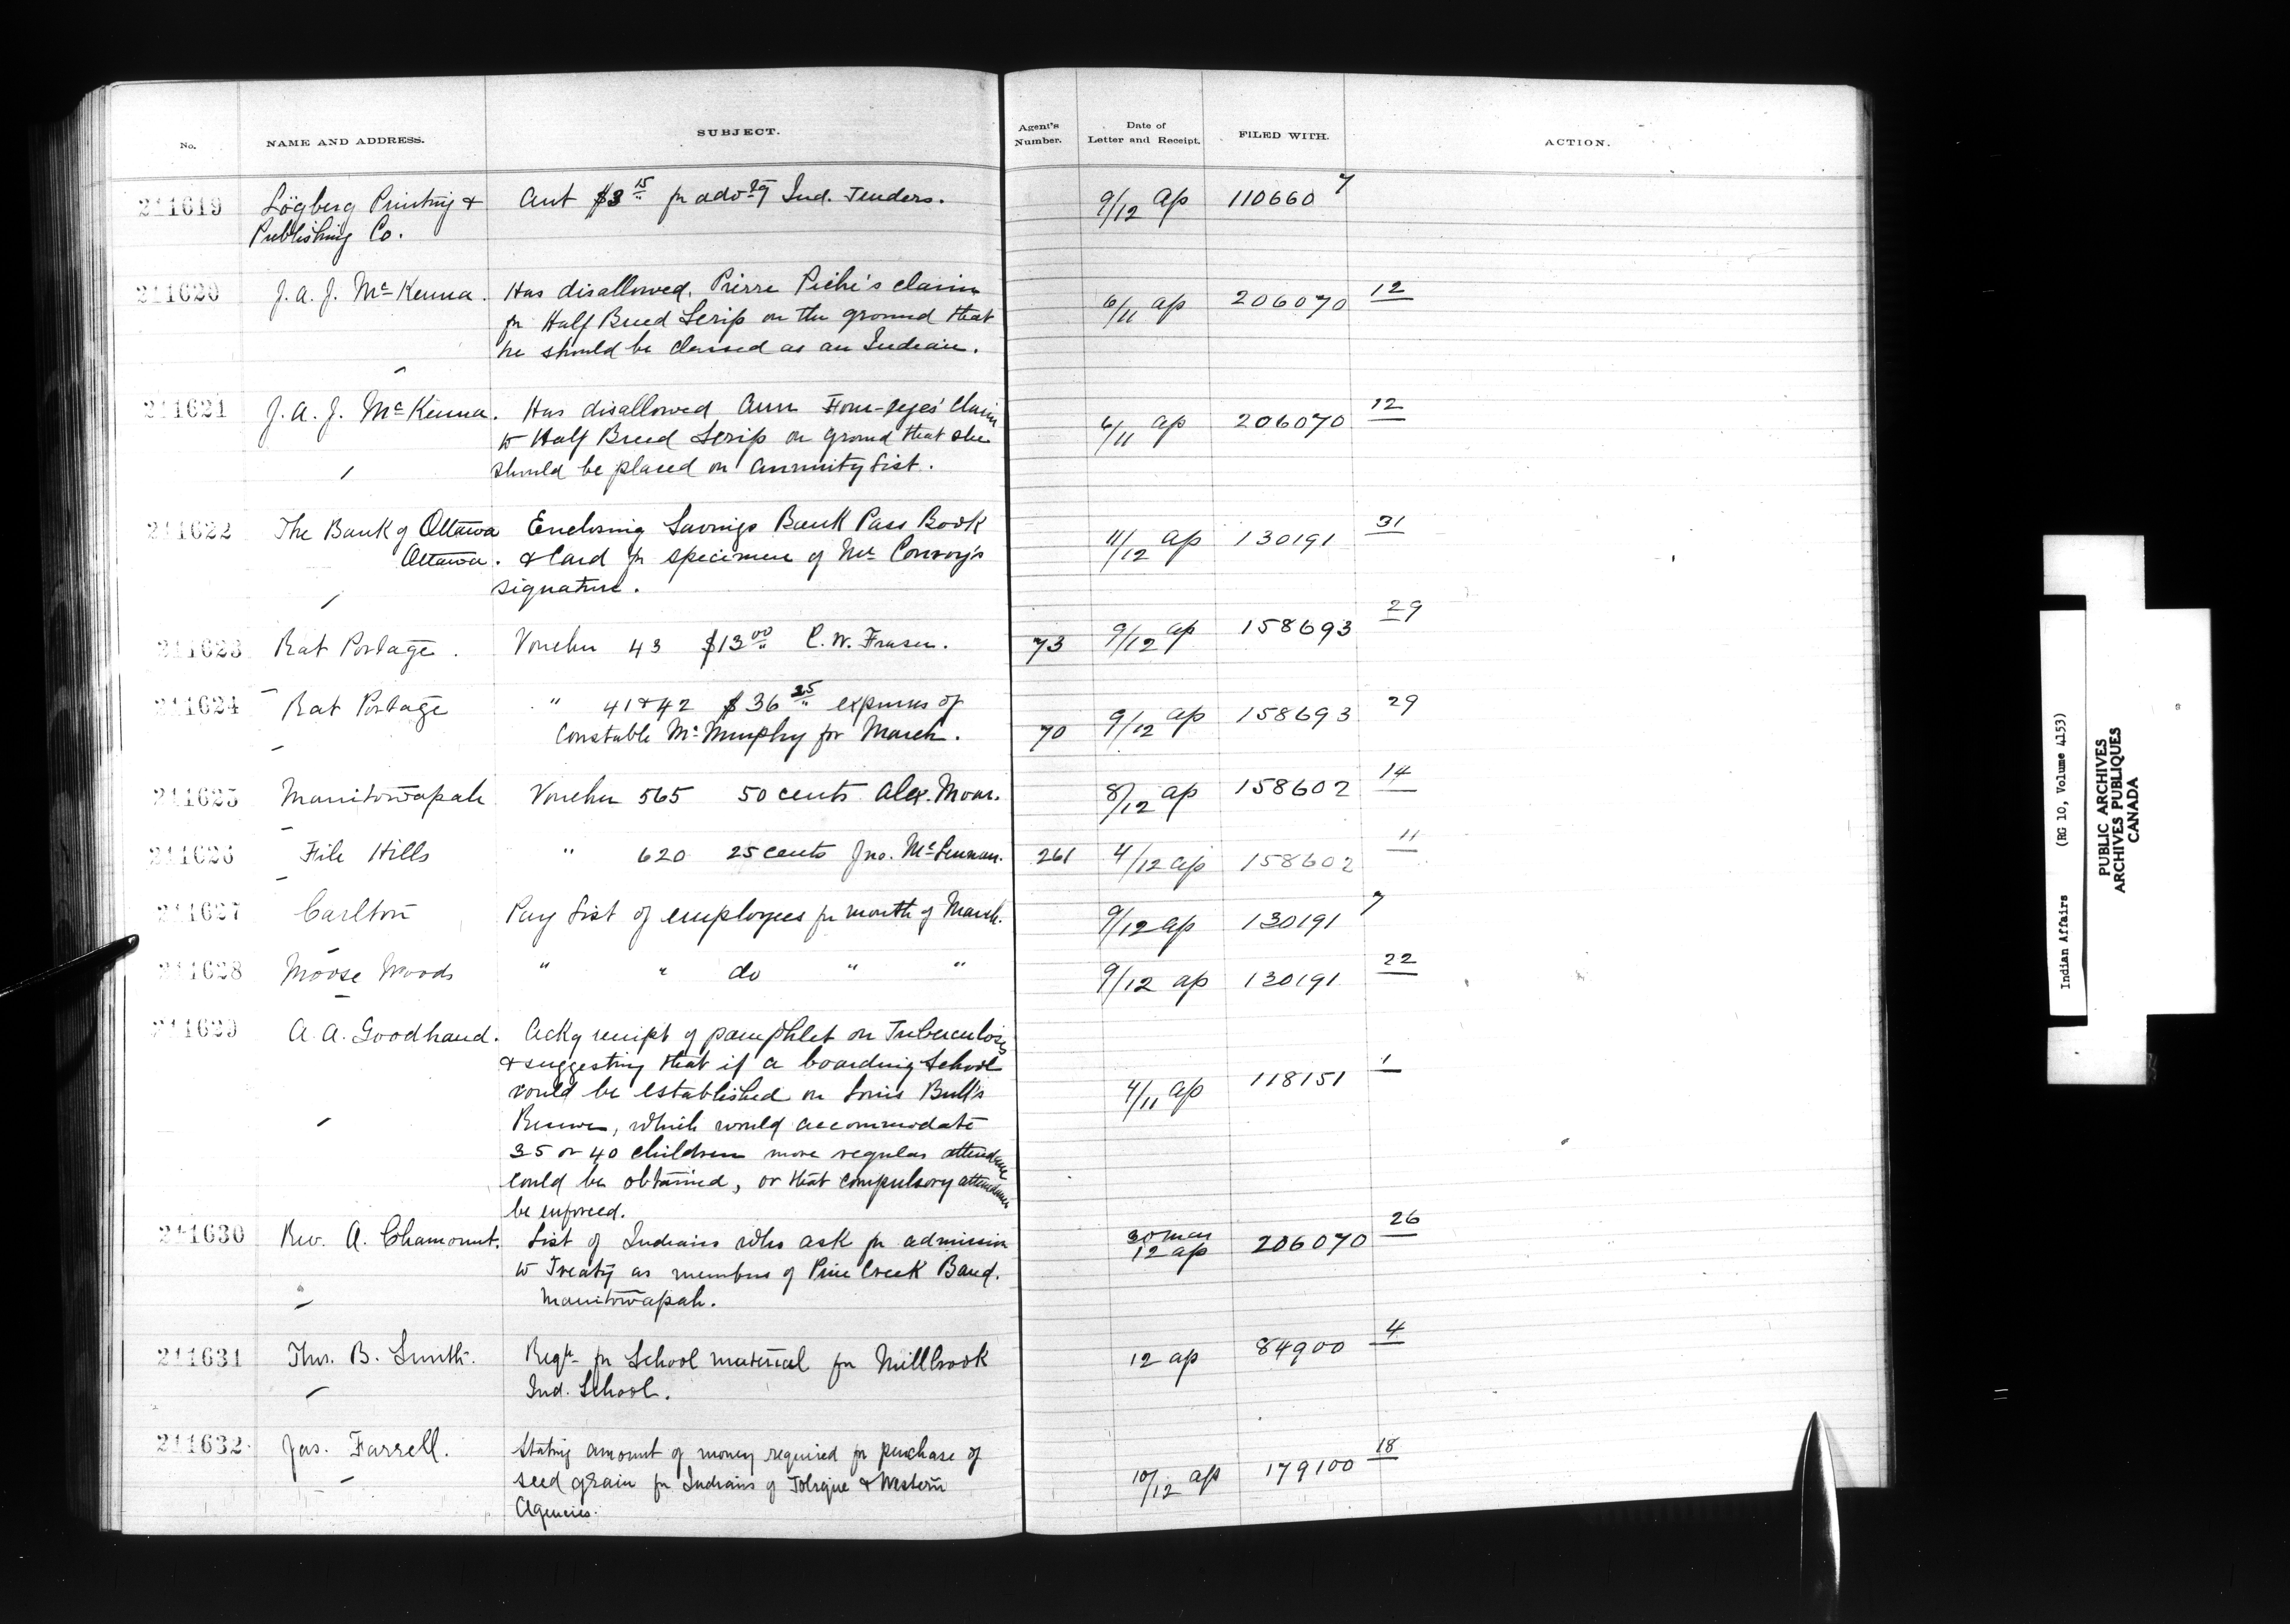 No. NAME AND ADDRESS. SUBJECT. Agent's Number. Date of Letter and Receipt. FILED WITH. ACTION.
211619 Lögberg Printing & Acct $3 15 fr advtg Ind. Tenders. 9/12 ap 110660 7
Publishing Co.
211620 J. A. J. McKenna. Has disallowed, Pierre Piché's claim 6/11 ap 206070 12
fr Half Breed Scrip on the ground that
he should be classed as an Indian.
211621 J. A. J. McKenna. Has disallowed Ann Four-eyes' claim 6/11 ap 206070 12
to Half Breed Scrip on ground that she
should be placed on annuity list.
211622 The Bank of Ottawa Enclosing Savings Bank Pass Book 11/12 ap 130191 31
Ottawa. & Card fr specimen of Mr Conroy's
signature.
211623 Rat Portage. Voucher 43 $13 00 C. W. Fraser. 73 9/12 ap 158693 29
211624 Rat Portage " 41 & 42 $36 25 expenses of
Constable McMurphy for March. 70 9/12 ap 158693 29
211625 Manitowapah Voucher 565 50 cents Alex. Moar. 8/12 ap 158602 14
211626 File Hills " 620 25 cents Jno. McLennan. 261 4/12 ap 158602 11
211627 Carlton Pay List of employees fr month of March. 9/12 ap 130191 7
211628 Moose Woods " " do " " 9/12 ap 130191 22
211629 A. A. Goodhand. Ackg receipt of pamphlet on Tuberculosis
& suggesting that if a boarding School
could be established on Louis Bull's 4/11 ap 118151 1
Reserve, which would accommodate
35 or 40 children more regular attendance
could be obtained, or that compulsory attendance
be enforced.
211630 Rev. A. Chamonnt. List of Indians who ask fr admission 30 mar 12 ap 206070 26
to Treaty as members of Pine Creek Band.
Manitowapah.
211631 Thos. B. Smith. Reqn fr School material fr Millbrook 12 ap 84900 4
Ind. School.
211632 Jas. Farrell. Stating amount of money required fr purchase of
seed grain fr Indians of Tobique & Western 10/12 ap 179100 18
Agencies.
Indian Affairs (RG 10, Volume 4153)
PUBLIC ARCHIVES
ARCHIVES PUBLIQUES
CANADA